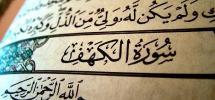 وَلَمْ يَكُن لَّهُ وَلِيٌّ مِّنَ الذُّلِّ وَكَبِّرْهُ
سُورَةُ الكَهْفِ
اللَّهِ الرَّحْمَٰنِ الرَّحِيمِ